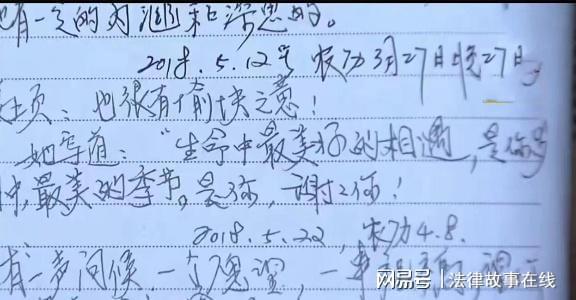 也有一定的对 和深思的。
2018.5.12号 农历3月27日晚27日
主页: 也很有愉快之意!
她写道: "生命中最美好的相遇, 是你
中, 最美的季节。是你, 谢谢你!
2018.5.22, 农历4.8.
有一声问候, 一个 , 一
网易号 | 法律故事在线